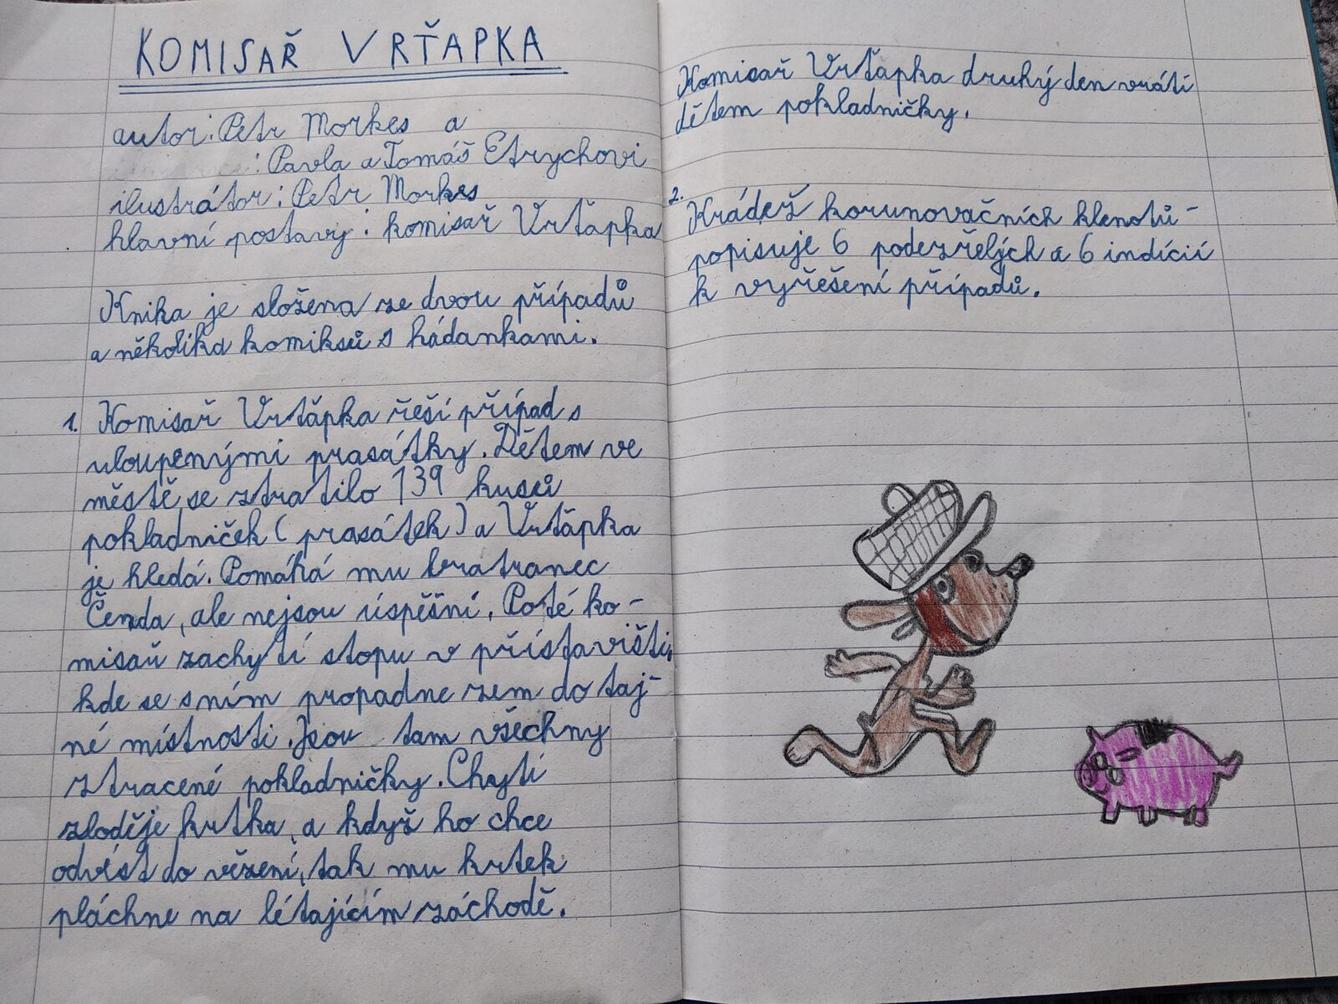 KOMISAŘ VRŤAPKA
autor: Petr Morkes a
: Pavla a Tomáš Etrychovi
ilustrátor: Petr Morkes
hlavní postavy: komisař Vrťapka
Kniha je složena ze dvou případů
a několika komiksů s hádankami.
1. Komisař Vrťápka řeší případ s
uloupenými prasátky. Dětem ve
městě se ztratilo 139 kusů
pokladniček (prasátek) a Vrťápka
je hledá. Pomáhá mu bratranec
Čenda, ale nejsou úspěšní. Poté ko-
misař zachytí stopu v přístavišti,
kde se s ním propadne zem do taj-
né místnosti. Jsou tam všechny
ztracené pokladničky. Chytí
zloděje krtka, a když ho chce
odvést do vězení, tak mu krtek
pláchne na létajícím záchodě.
Komisař Vrťapka druhý den vrátí
dětem pokladničky.
2. Krádež korunovačních klenotů -
popisuje 6 podezřelých a 6 indícií
k vyřešení případů.